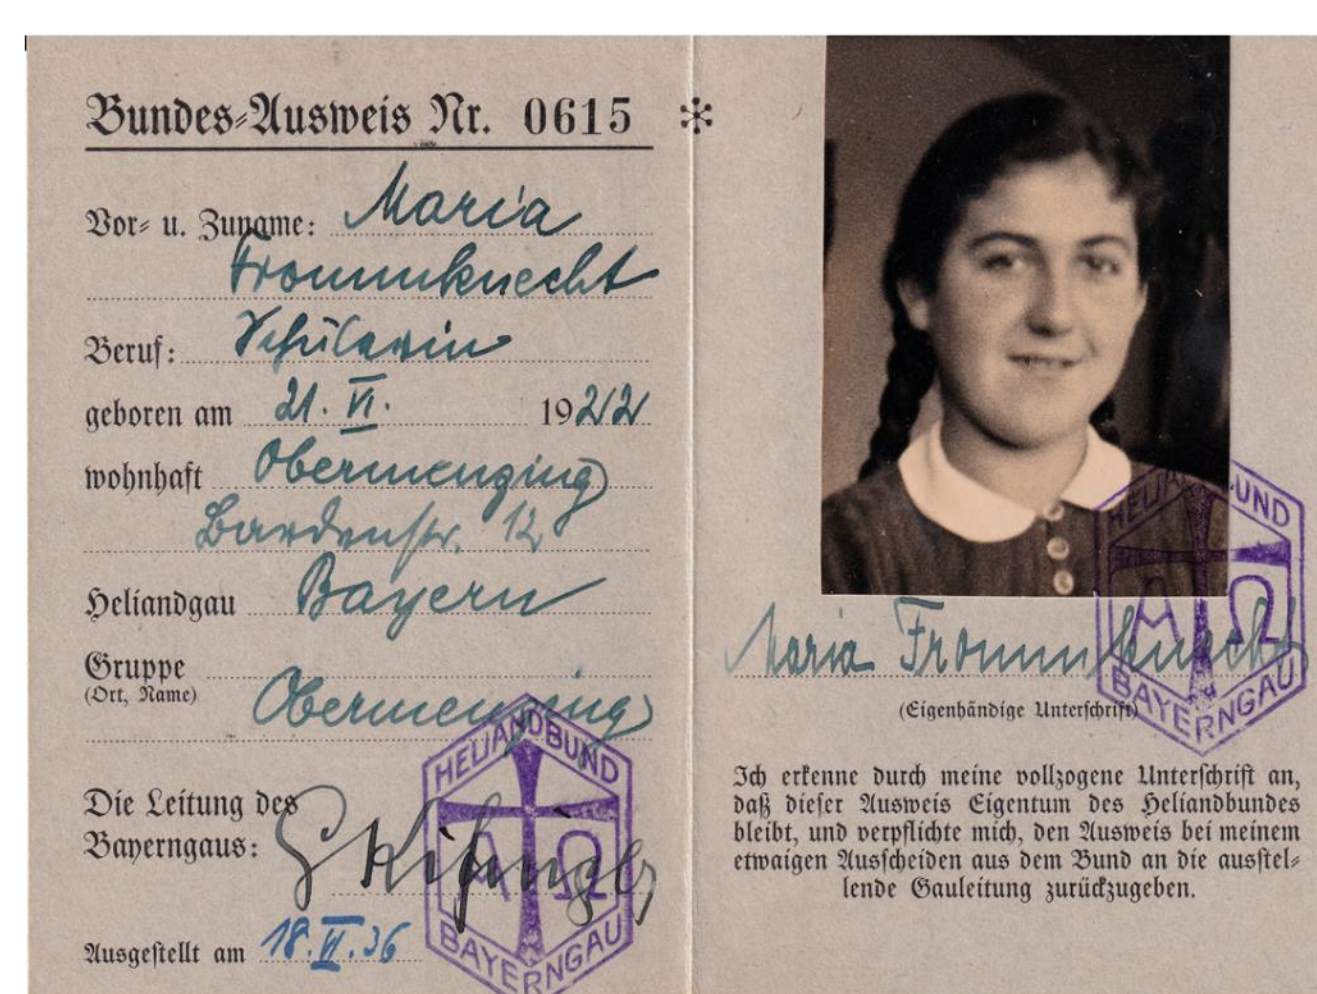 Bundes-Ausweis Nr. 0615 *
Vor- u. Zuname: Maria
Frommknecht
Beruf: Schülerin
geboren am 21. VI. 1922
wohnhaft Obermenzing
Bardenstr. 12
Heliandgau Bayern
Gruppe
(Ort, Name)
Obermenzing
Die Leitung des
Bayerngaus:
HELIANDBUND
Α Ω
BAYERNGAU
Ausgestellt am 18. VI. 36
HELIANDBUND
Α Ω
BAYERNGAU
Maria Frommknecht
(Eigenhändige Unterschrift)
Ich erkenne durch meine vollzogene Unterschrift an,
daß dieser Ausweis Eigentum des Heliandbundes
bleibt, und verpflichte mich, den Ausweis bei meinem
etwaigen Ausscheiden aus dem Bund an die ausstel-
lende Gauleitung zurückzugeben.